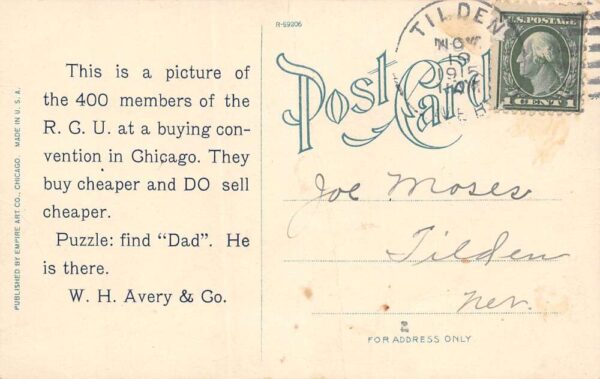 R-69206
TILDEN
NOV
1915
NEB
U.S. POSTAGE
1 CENT 1
Post Card
This is a picture of
the 400 members of the
R. G. U. at a buying con-
vention in Chicago. They
buy cheaper and DO sell
cheaper.
Puzzle: find "Dad". He
is there.
W. H. Avery & Co.
PUBLISHED BY EMPIRE ART CO., CHICAGO. MADE IN U. S. A.
Joe Moses
Tilden
Nev.
FOR ADDRESS ONLY